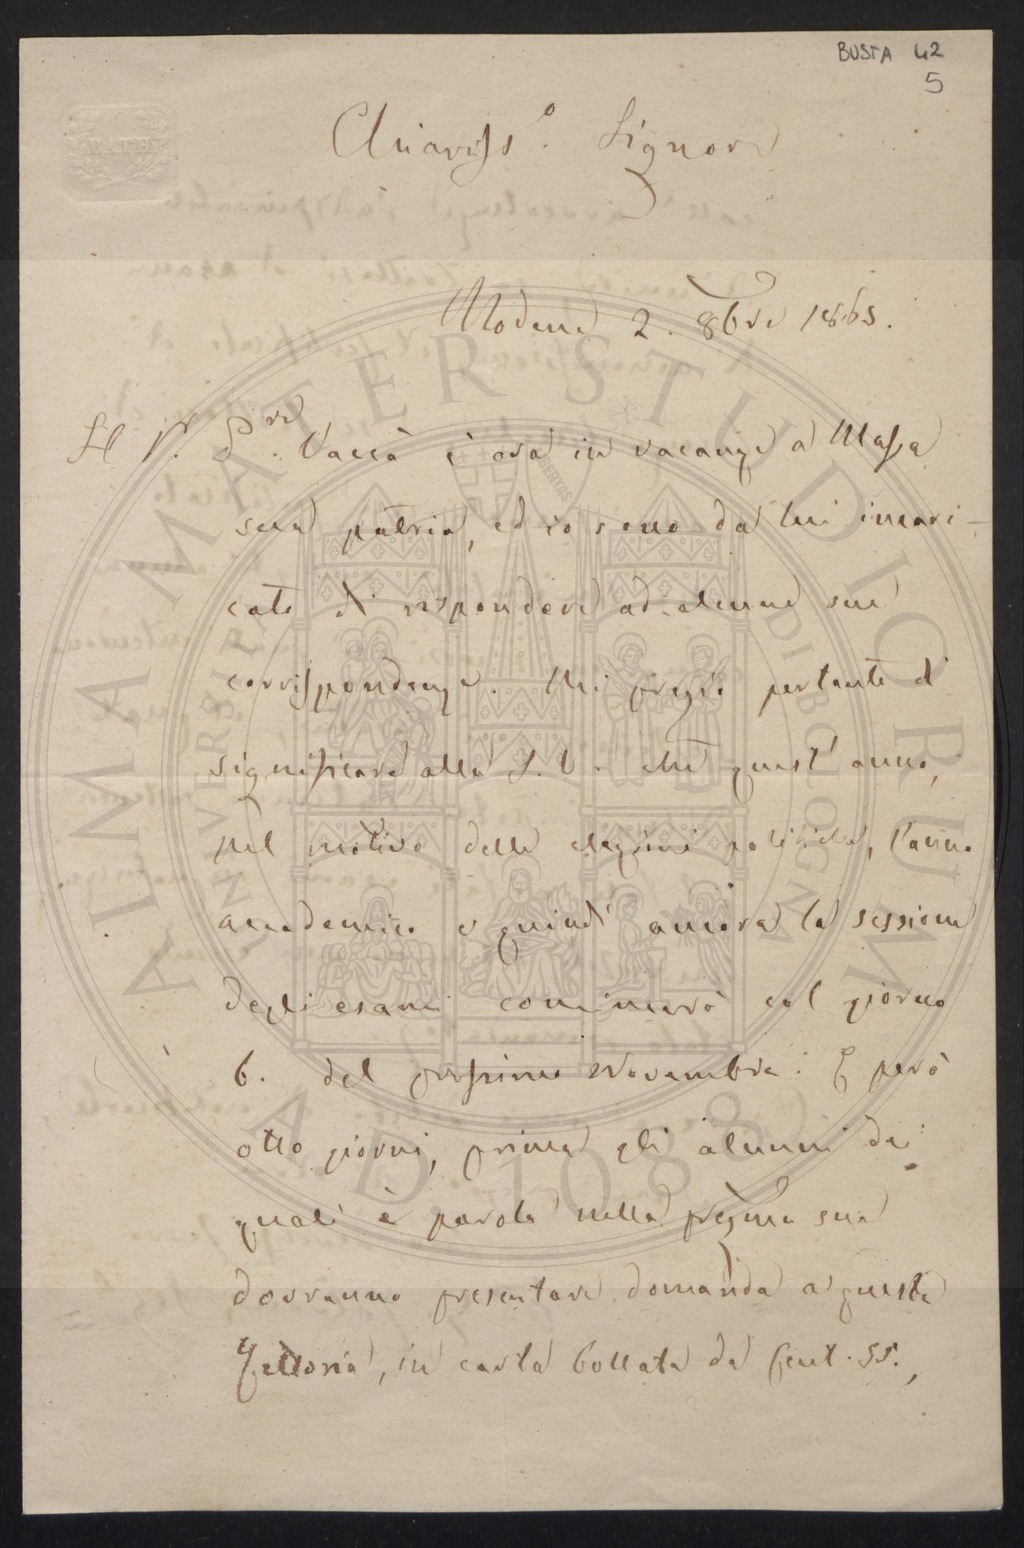 BUSTA 42
5
BATH
Chiariss.o Signore
Modena 2. 8bre 1865.
Il Sr. P.re Vaccà è ora in vacanze a Massa
sua patria, ed io sono da lui incari-
cato di rispondere ad alcune sue
corrispondenze. Mi pregio pertanto di
significare alla S.V. che quest'anno,
pel motivo delle elezioni politiche, l'anno
accademico e quindi ancora la sessione
degli esami comincierà col giorno
6. del prossimo Novembre. E però
otto giorni, prima gli alunni de'
quali è parola nella pregma sua
dovranno presentare domanda a questa
Rettoria, in carta bollata da Cent. 55.,
ALMA MATER STUDIORUM
UNIVERSITÀ DI BOLOGNA
LIBERTAS
A.D. 1088